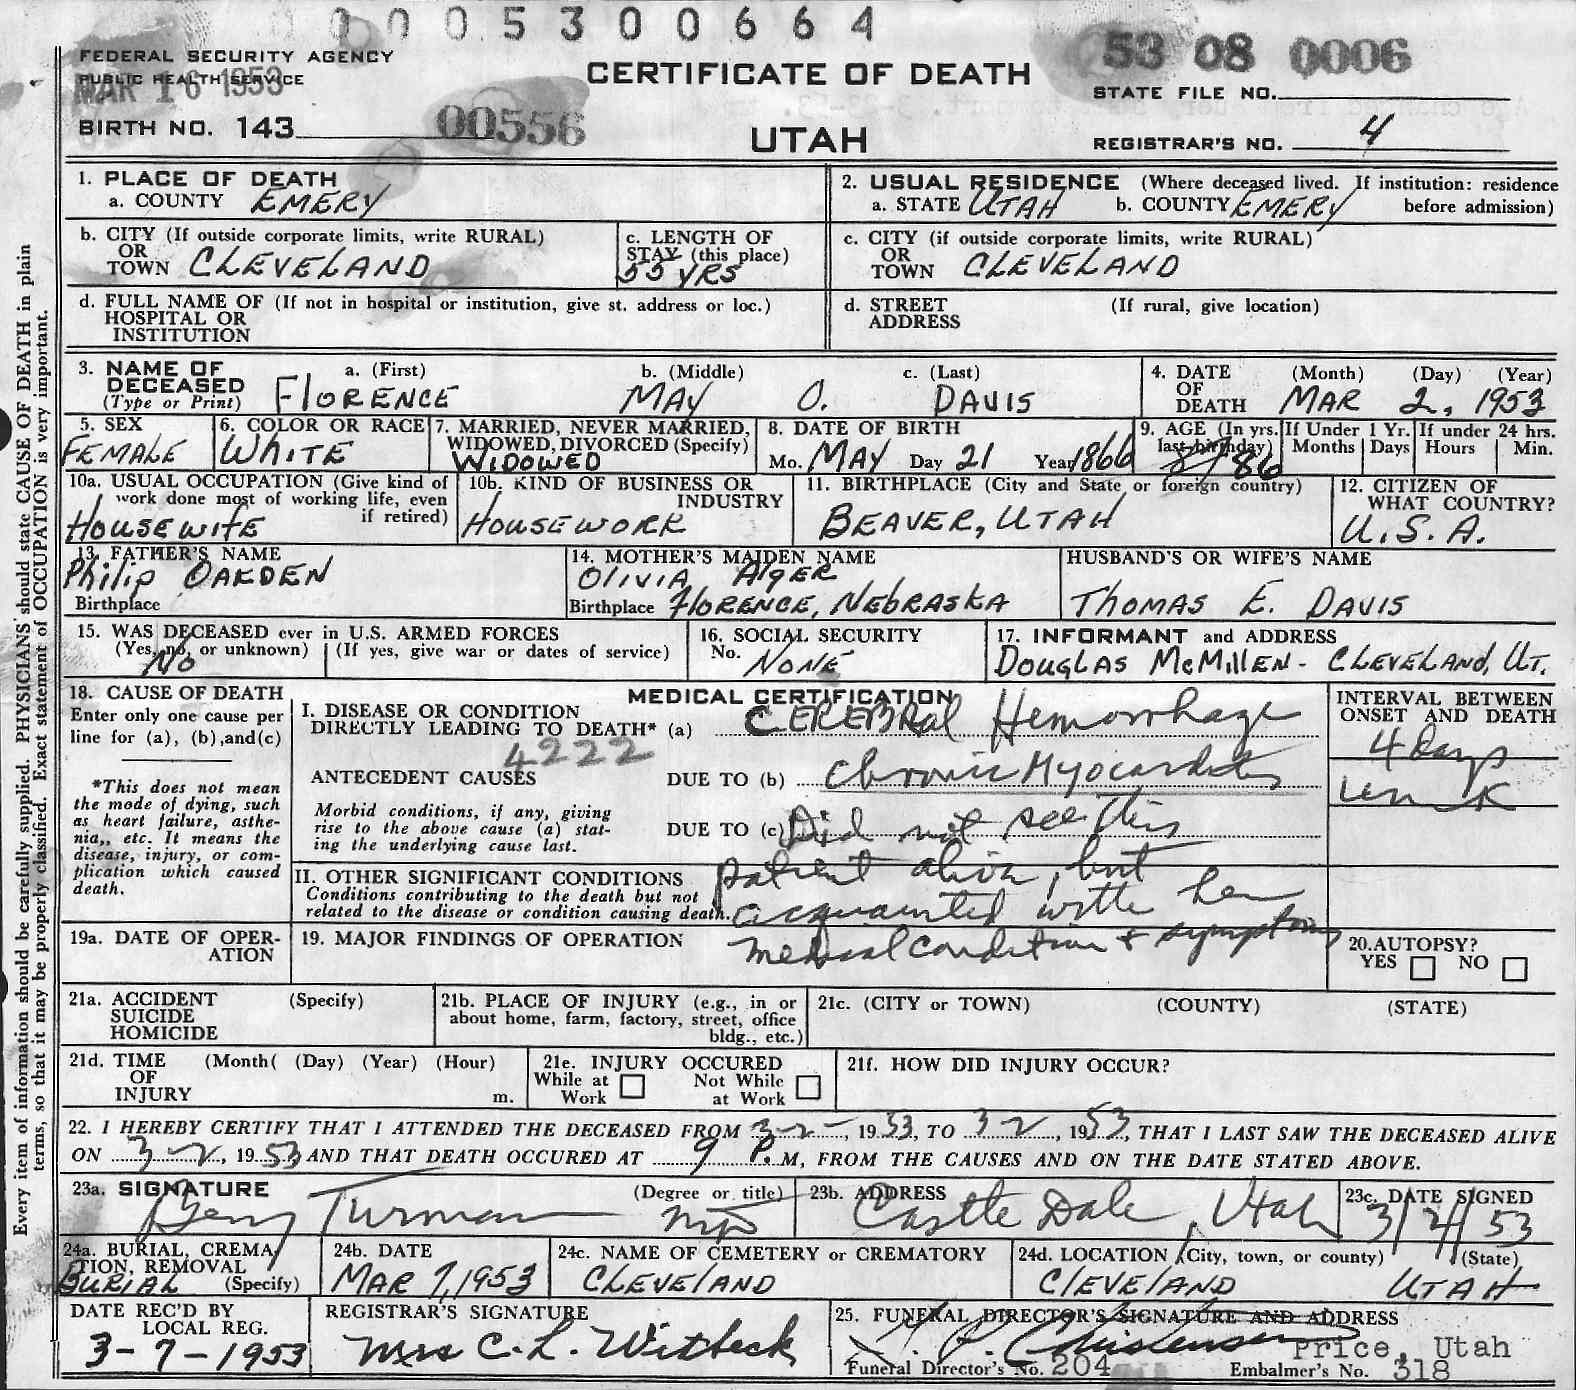 0005300664
FEDERAL SECURITY AGENCY
PUBLIC HEALTH SERVICE
MAR 16 1953
CERTIFICATE OF DEATH
53 08 0006
STATE FILE NO.
BIRTH NO. 143
00556
UTAH
REGISTRAR'S NO. 4
1. PLACE OF DEATH
a. COUNTY EMERY
2. USUAL RESIDENCE (Where deceased lived. If institution: residence
a. STATE UTAH b. COUNTY EMERY before admission)
b. CITY (If outside corporate limits, write RURAL)
OR
TOWN CLEVELAND
c. LENGTH OF
STAY (this place)
55 YRS
c. CITY (if outside corporate limits, write RURAL)
OR
TOWN CLEVELAND
d. FULL NAME OF (If not in hospital or institution, give st. address or loc.)
HOSPITAL OR
INSTITUTION
d. STREET (If rural, give location)
ADDRESS
3. NAME OF
DECEASED
(Type or Print)
a. (First) b. (Middle) c. (Last)
FLORENCE MAY O. DAVIS
4. DATE (Month) (Day) (Year)
OF
DEATH MAR 2, 1953
5. SEX
FEMALE
6. COLOR OR RACE
WHITE
7. MARRIED, NEVER MARRIED,
WIDOWED, DIVORCED (Specify)
WIDOWED
8. DATE OF BIRTH
Mo. MAY Day 21 Year 1866
9. AGE (In yrs.
last birthday)
87 86
If Under 1 Yr.
Months Days
If under 24 hrs.
Hours Min.
10a. USUAL OCCUPATION (Give kind of
work done most of working life, even
if retired)
HOUSEWIFE
10b. KIND OF BUSINESS OR
INDUSTRY
HOUSEWORK
11. BIRTHPLACE (City and State or foreign country)
BEAVER, UTAH
12. CITIZEN OF
WHAT COUNTRY?
U.S.A.
13. FATHER'S NAME
Philip OAKDEN
Birthplace
14. MOTHER'S MAIDEN NAME
OLIVIA AlgER
Birthplace FLORENCE, NEBRASKA
HUSBAND'S OR WIFE'S NAME
THOMAS E. DAVIS
15. WAS DECEASED ever in U.S. ARMED FORCES
(Yes, no, or unknown) (If yes, give war or dates of service)
No
16. SOCIAL SECURITY
No. NONE
17. INFORMANT and ADDRESS
DOUGLAS McMILLEN - CLEVELAND, UT.
18. CAUSE OF DEATH
Enter only one cause per
line for (a), (b),and(c)
*This does not mean
the mode of dying, such
as heart failure, asthe-
nia,, etc. It means the
disease, injury, or com-
plication which caused
death.
MEDICAL CERTIFICATION
I. DISEASE OR CONDITION
DIRECTLY LEADING TO DEATH* (a) CEREBRal Hemorrhage
4222
ANTECEDENT CAUSES
DUE TO (b) Chronic Myocarditis
Morbid conditions, if any, giving
rise to the above cause (a) stat-
ing the underlying cause last.
DUE TO (c) Did not see this
patient alive, but
acquainted with her
medical condition + symptoms
II. OTHER SIGNIFICANT CONDITIONS
Conditions contributing to the death but not
related to the disease or condition causing death.
INTERVAL BETWEEN
ONSET AND DEATH
4 days
19a. DATE OF OPER-
ATION
19. MAJOR FINDINGS OF OPERATION
20. AUTOPSY?
YES NO
21a. ACCIDENT (Specify)
SUICIDE
HOMICIDE
21b. PLACE OF INJURY (e.g., in or
about home, farm, factory, street, office
bldg., etc.)
21c. (CITY or TOWN) (COUNTY) (STATE)
21d. TIME (Month( (Day) (Year) (Hour)
OF
INJURY m.
21e. INJURY OCCURED
While at Work Not While at Work
21f. HOW DID INJURY OCCUR?
22. I HEREBY CERTIFY THAT I ATTENDED THE DECEASED FROM 3-2-, 1953, TO 3-2, 1953, THAT I LAST SAW THE DECEASED ALIVE
ON 3-2, 1953 AND THAT DEATH OCCURED AT 9 P.M, FROM THE CAUSES AND ON THE DATE STATED ABOVE.
23a. SIGNATURE (Degree or title)
Turman MD
23b. ADDRESS
Castle Dale, Utah
23c. DATE SIGNED
3/4/53
24a. BURIAL, CREMA
TION, REMOVAL
BURIAL (Specify)
24b. DATE
MAR 7, 1953
24c. NAME OF CEMETERY or CREMATORY
CLEVELAND
24d. LOCATION (City, town, or county) (State)
CLEVELAND UTAH
DATE REC'D BY
LOCAL REG.
3-7-1953
REGISTRAR'S SIGNATURE
Mrs C. L. Witbeck
25. FUNERAL DIRECTOR'S SIGNATURE AND ADDRESS
Christensen Price, Utah
Funeral Director's No. 204 Embalmer's No. 318
Every item of information should be carefully supplied. PHYSICIANS should state CAUSE OF DEATH in plain
terms, so that it may be properly classified. Exact statement of OCCUPATION is very important.